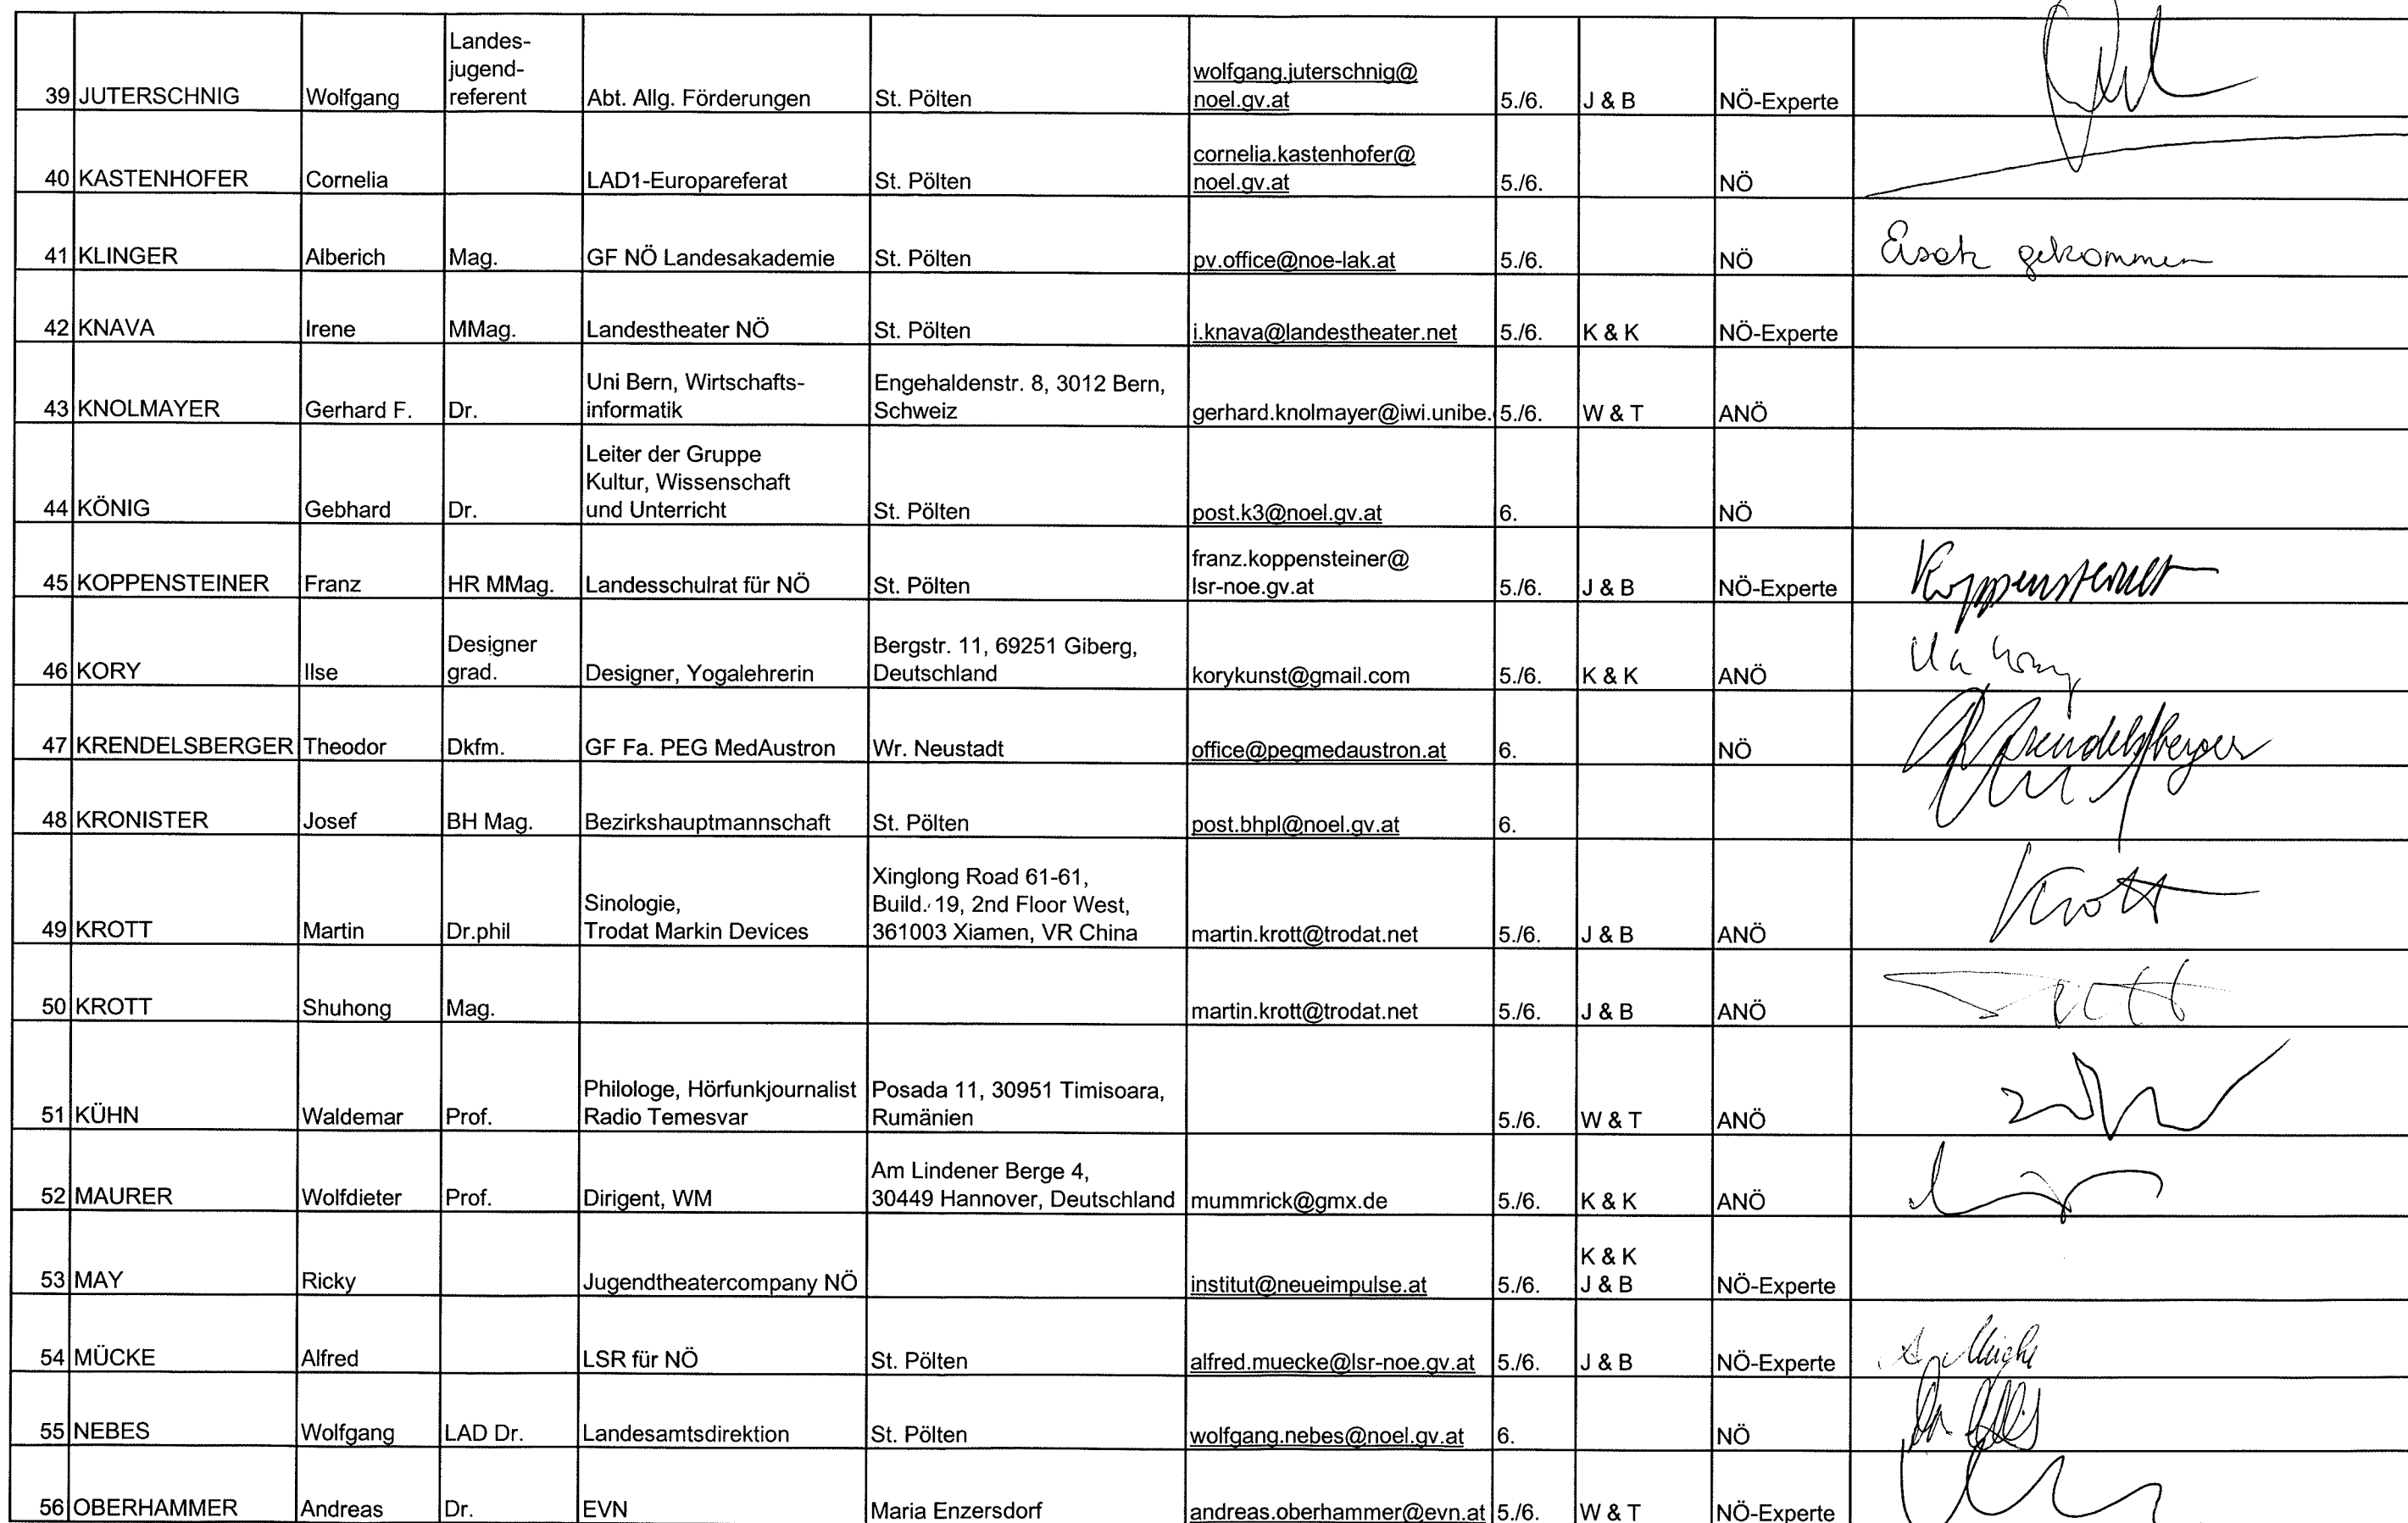 39 JUTERSCHNIG Wolfgang Landes-
jugend-
referent Abt. Allg. Förderungen St. Pölten wolfgang.juterschnig@
noel.gv.at 5./6. J & B NÖ-Experte
40 KASTENHOFER Cornelia LAD1-Europareferat St. Pölten cornelia.kastenhofer@
noel.gv.at 5./6. NÖ
41 KLINGER Alberich Mag. GF NÖ Landesakademie St. Pölten pv.office@noe-lak.at 5./6. NÖ gekommen
42 KNAVA Irene MMag. Landestheater NÖ St. Pölten i.knava@landestheater.net 5./6. K & K NÖ-Experte
43 KNOLMAYER Gerhard F. Dr. Uni Bern, Wirtschafts-
informatik Engehaldenstr. 8, 3012 Bern,
Schweiz gerhard.knolmayer@iwi.unibe. 5./6. W & T ANÖ
44 KÖNIG Gebhard Dr. Leiter der Gruppe
Kultur, Wissenschaft
und Unterricht St. Pölten post.k3@noel.gv.at 6. NÖ
45 KOPPENSTEINER Franz HR MMag. Landesschulrat für NÖ St. Pölten franz.koppensteiner@
lsr-noe.gv.at 5./6. J & B NÖ-Experte Koppensteiner
46 KORY Ilse Designer
grad. Designer, Yogalehrerin Bergstr. 11, 69251 Giberg,
Deutschland korykunst@gmail.com 5./6. K & K ANÖ
47 KRENDELSBERGER Theodor Dkfm. GF Fa. PEG MedAustron Wr. Neustadt office@pegmedaustron.at 6. NÖ Krendelsberger
48 KRONISTER Josef BH Mag. Bezirkshauptmannschaft St. Pölten post.bhpl@noel.gv.at 6.
49 KROTT Martin Dr.phil Sinologie,
Trodat Markin Devices Xinglong Road 61-61,
Build. 19, 2nd Floor West,
361003 Xiamen, VR China martin.krott@trodat.net 5./6. J & B ANÖ Krott
50 KROTT Shuhong Mag. martin.krott@trodat.net 5./6. J & B ANÖ
51 KÜHN Waldemar Prof. Philologe, Hörfunkjournalist
Radio Temesvar Posada 11, 30951 Timisoara,
Rumänien 5./6. W & T ANÖ
52 MAURER Wolfdieter Prof. Dirigent, WM Am Lindener Berge 4,
30449 Hannover, Deutschland mummrick@gmx.de 5./6. K & K ANÖ
53 MAY Ricky Jugendtheatercompany NÖ institut@neueimpulse.at 5./6. K & K
J & B NÖ-Experte
54 MÜCKE Alfred LSR für NÖ St. Pölten alfred.muecke@lsr-noe.gv.at 5./6. J & B NÖ-Experte
55 NEBES Wolfgang LAD Dr. Landesamtsdirektion St. Pölten wolfgang.nebes@noel.gv.at 6. NÖ
56 OBERHAMMER Andreas Dr. EVN Maria Enzersdorf andreas.oberhammer@evn.at 5./6. W & T NÖ-Experte